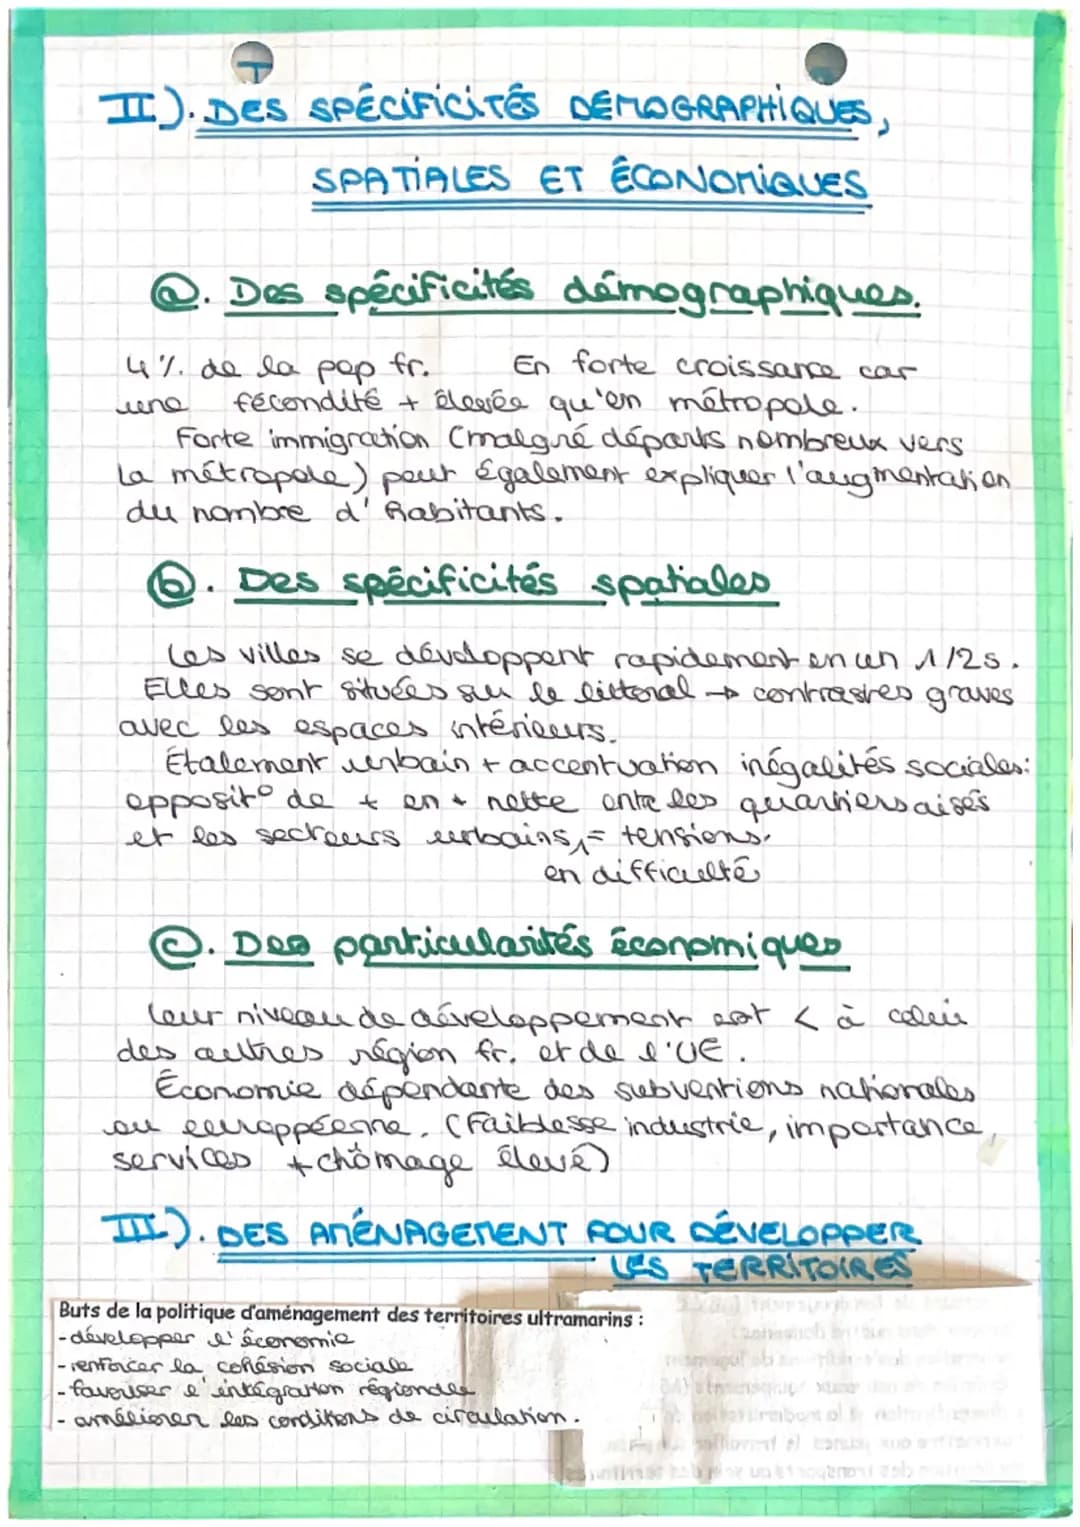 II). DES SPÉCIFICITÉS DÉMOGRAPHIQUES,
SPATIALES ET ÉCONOMIQUES
a. Des spécificités démographiques.
4%. de la pop fr. En forte croissance car
une fécondité + élevée qu'en métropole.
Forte immigration (malgré départs nombreux vers
la métropole) peut également expliquer l'augmentation
du nombre d'habitants.
b. Des spécificités spatiales
Les villes se développent rapidement en un 1/2s.
Elles sont situées sur le littoral → contrastes graves
avec les espaces intérieurs.
Étalement urbain + accentuation inégalités sociales:
opposit° de + en + nette entre les quartiers aisés
et les secteurs urbains, = tensions.
en difficulté
c. Des particularités économiques
Leur niveau de développement est < à celui
des autres région fr. et de l'UE.
Économie dépendante des subventions nationales
ou européenne. (Faiblesse industrie, importance,
services + chômage élevé)
III). DES AMÉNAGEMENT POUR DÉVELOPPER
LES TERRITOIRES
Buts de la politique d'aménagement des territoires ultramarins :
- développer l'économie
- renforcer la cohésion sociale
- favoriser l'intégration régionale
- améliorer les conditions de circulation.